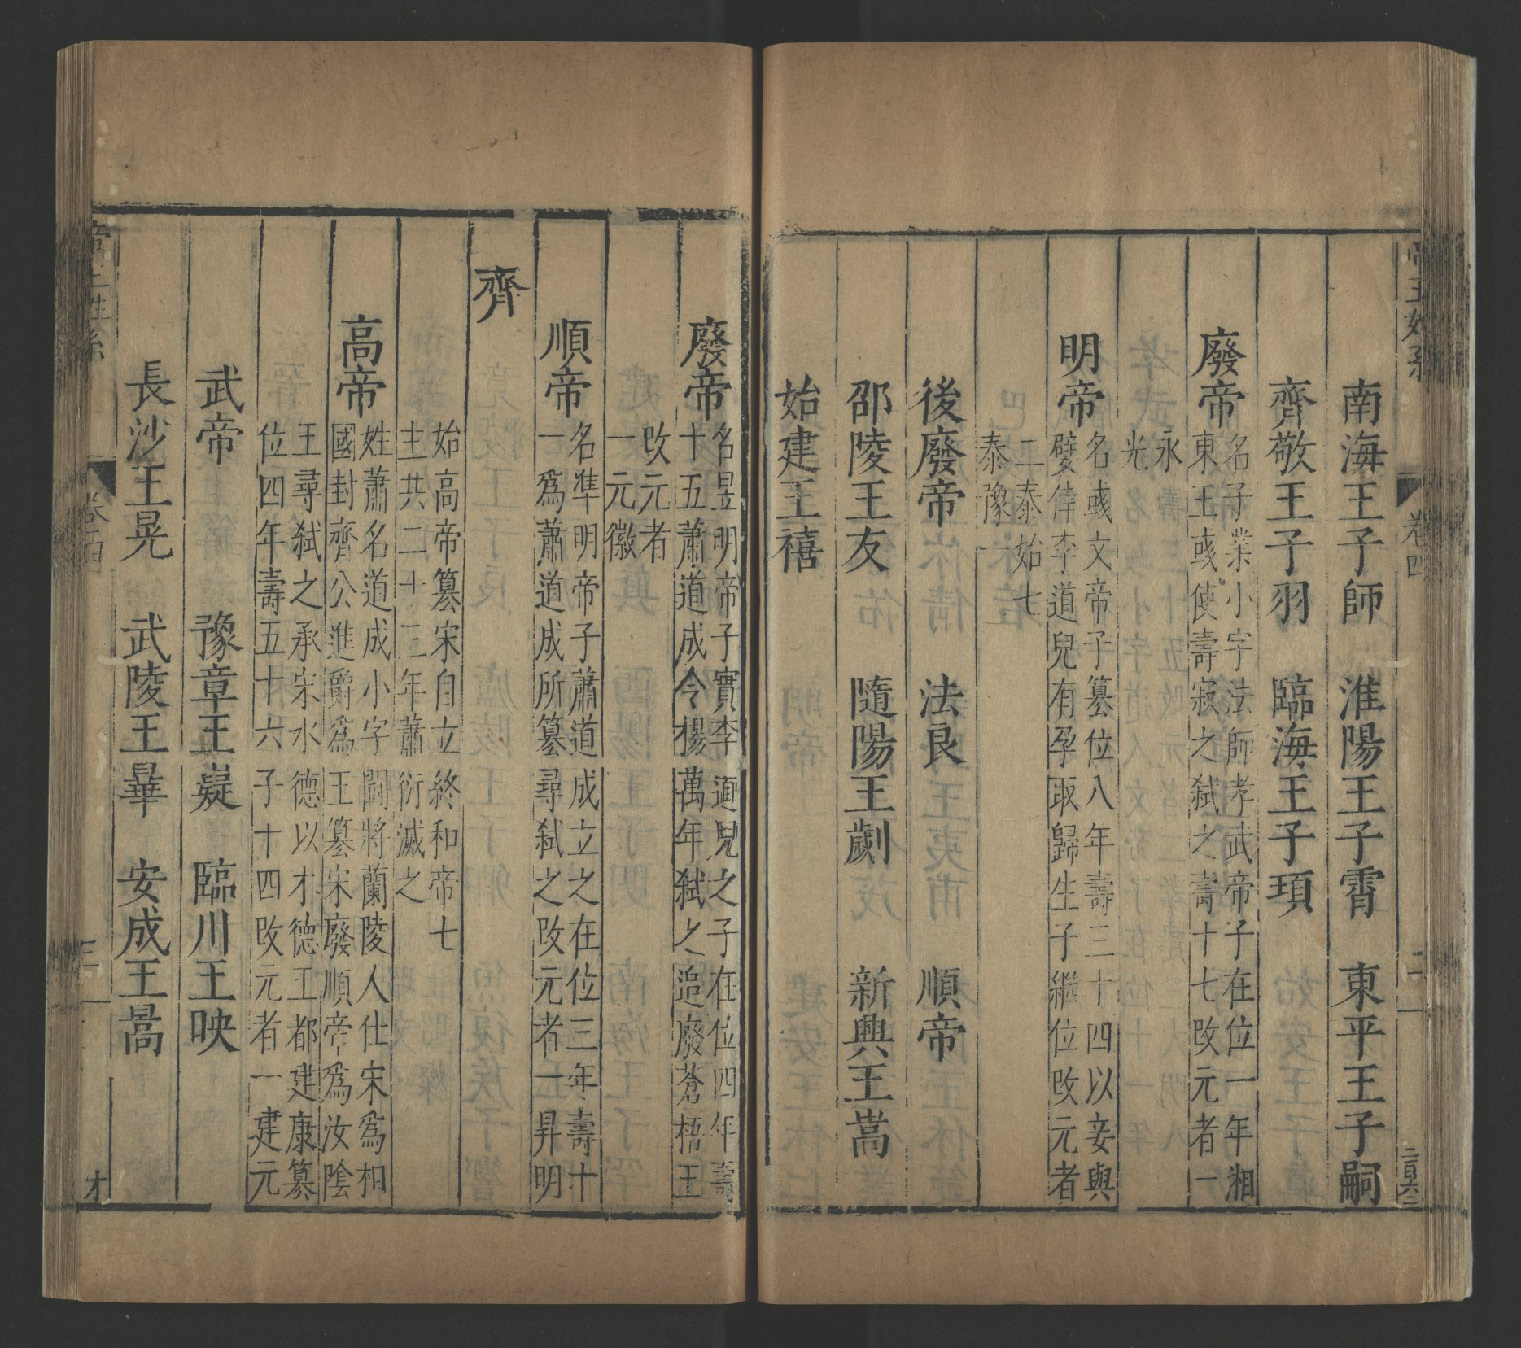 南海王子師 淮陽王子霄 東平王子嗣
齊敬王子羽 臨海王子頊
廢帝
名子業小字法師孝武帝子在位一年湘
東王彧使壽寂之弑之壽十七改元者一
永
光
明帝
名彧文帝子篡位八年壽三十四以妾與
嬖倖李道兒有孕取歸生子繼位改元者
二泰始七
泰豫一
後廢帝 法良 順帝
邵陵王友 隨陽王劌 新興王嵩
始建王禧
廢帝
名昱明帝子實李道兒之子在位四年壽
十五蕭道成令楊萬年弑之追廢蒼梧王
改元者
一元徽
順帝
名準明帝子蕭道成立之在位三年壽十
一爲蕭道成所篡尋弑之改元者一昇明
齊
始高帝篡宋自立終和帝七
主共二十三年蕭衍滅之
高帝
姓蕭名道成小字鬬將蘭陵人仕宋爲相
國封齊公進爵爲王篡宋廢順帝爲汝陰
王尋弑之承宋水德以才德王都建康篡
位四年壽五十六子十四改元者一建元
武帝 豫章王嶷 臨川王映
長沙王晃 武陵王曅 安成王暠
帝王姓系 卷四 三 才